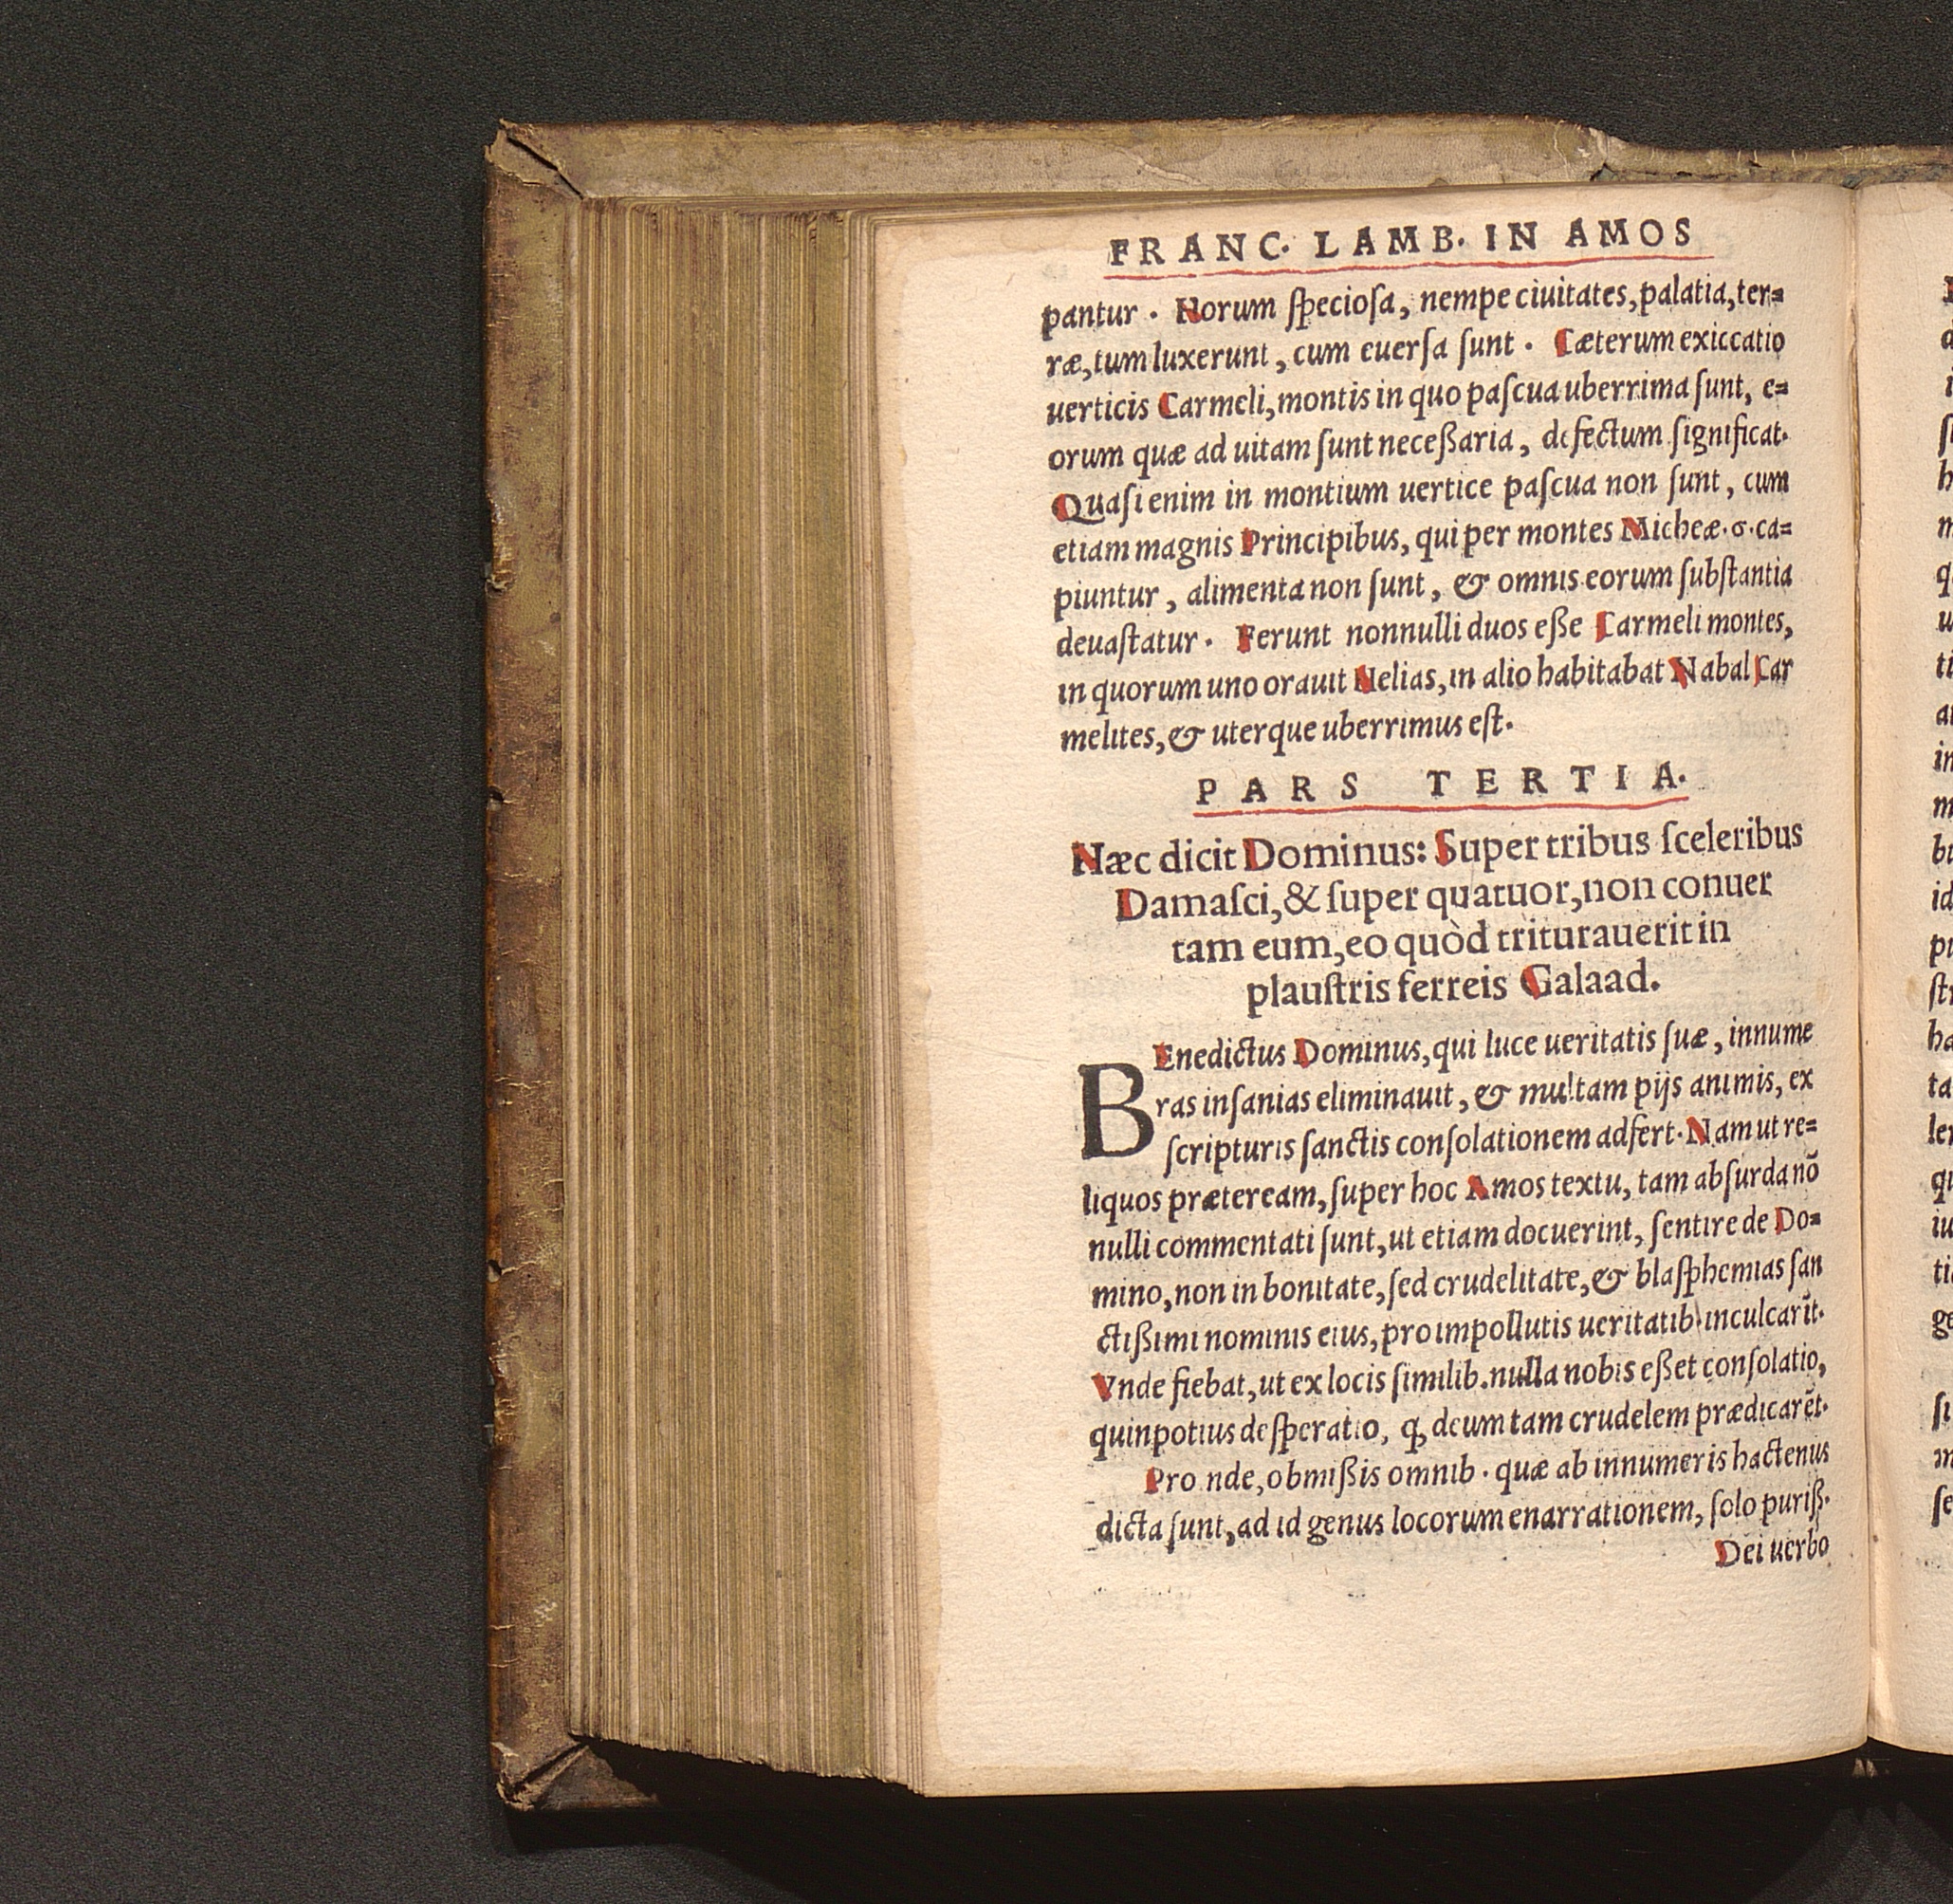 FRANC. LAMB. IN AMOS
pantur. Horum ſpecioſa, nempe ciuitates, palatia, ter=
ræ, tum luxerunt, cum euerſa ſunt. Cæterum exiccatio
uerticis Carmeli, montis in quo paſcua uberrima ſunt, e=
orum quæ ad uitam ſunt neceßaria, defectum ſignificat.
Quaſi enim in montium uertice paſcua non ſunt, cum
etiam magnis Principibus, qui per montes Micheæ. 6. ca=
piuntur, alimenta non ſunt, & omnis eorum ſubſtantia
deuaſtatur. Ferunt nonnulli duos eße Carmeli montes,
in quorum uno orauit Helias, in alio habitabat Nabal Car
melites, & uterque uberrimus eſt.
PARS TERTIA.
Hæc dicit Dominus: Super tribus ſceleribus
Damaſci, & ſuper quatuor, non conuer
tam eum, eo quòd triturauerit in
plauſtris ferreis Galaad.
BEnedictus Dominus, qui luce ueritatis ſuæ, innume
ras inſanias eliminauit, & multam pijs animis, ex
ſcripturis ſanctis conſolationem adfert. Nam ut re=
liquos præteream, ſuper hoc Amos textu, tam abſurda nõ
nulli commentati ſunt, ut etiam docuerint, ſentire de Do=
mino, non in bonitate, ſed crudelitate, & blaſphemias ſan
ctißimi nominis eius, pro impollutis ueritatib. inculcarĩt.
Vnde fiebat, ut ex locis ſimilib. nulla nobis eßet conſolatio,
quinpotius deſperatio, ꝙ deum tam crudelem prædicarẽt.
Pro nde, obmißis omnib. quæ ab innumeris hactenus
dicta ſunt, ad id genus locorum enarrationem, ſolo puriß.
Dei uerbo